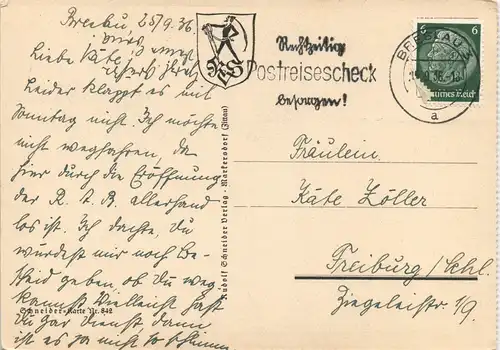 Breslau, 25/9.36.
Liebe Käte,
Leider klappt es mit
Sonntag nicht. Ich möchte
nicht wegfahren, da
hier durch die Eröffnung
der R. t. B. allerhand
los ist. Ich dachte, du
würdest mir noch Be-
scheid geben, ob du weg
kannst. Vielleicht hast
du gar Dienst dann
ist es ja nicht so schlimm
Rudolf Schneider Verlag · Markersdorf (Zittau)
Schneider-Karte Nr. 842
RS
Rechtzeitig
Postreisescheck
besorgen!
BRESLAU
a
6 6
Deutsches Reich
Fräulein
Käte Zöller
Freiburg/Schl.
Ziegeleistr. 1/9.